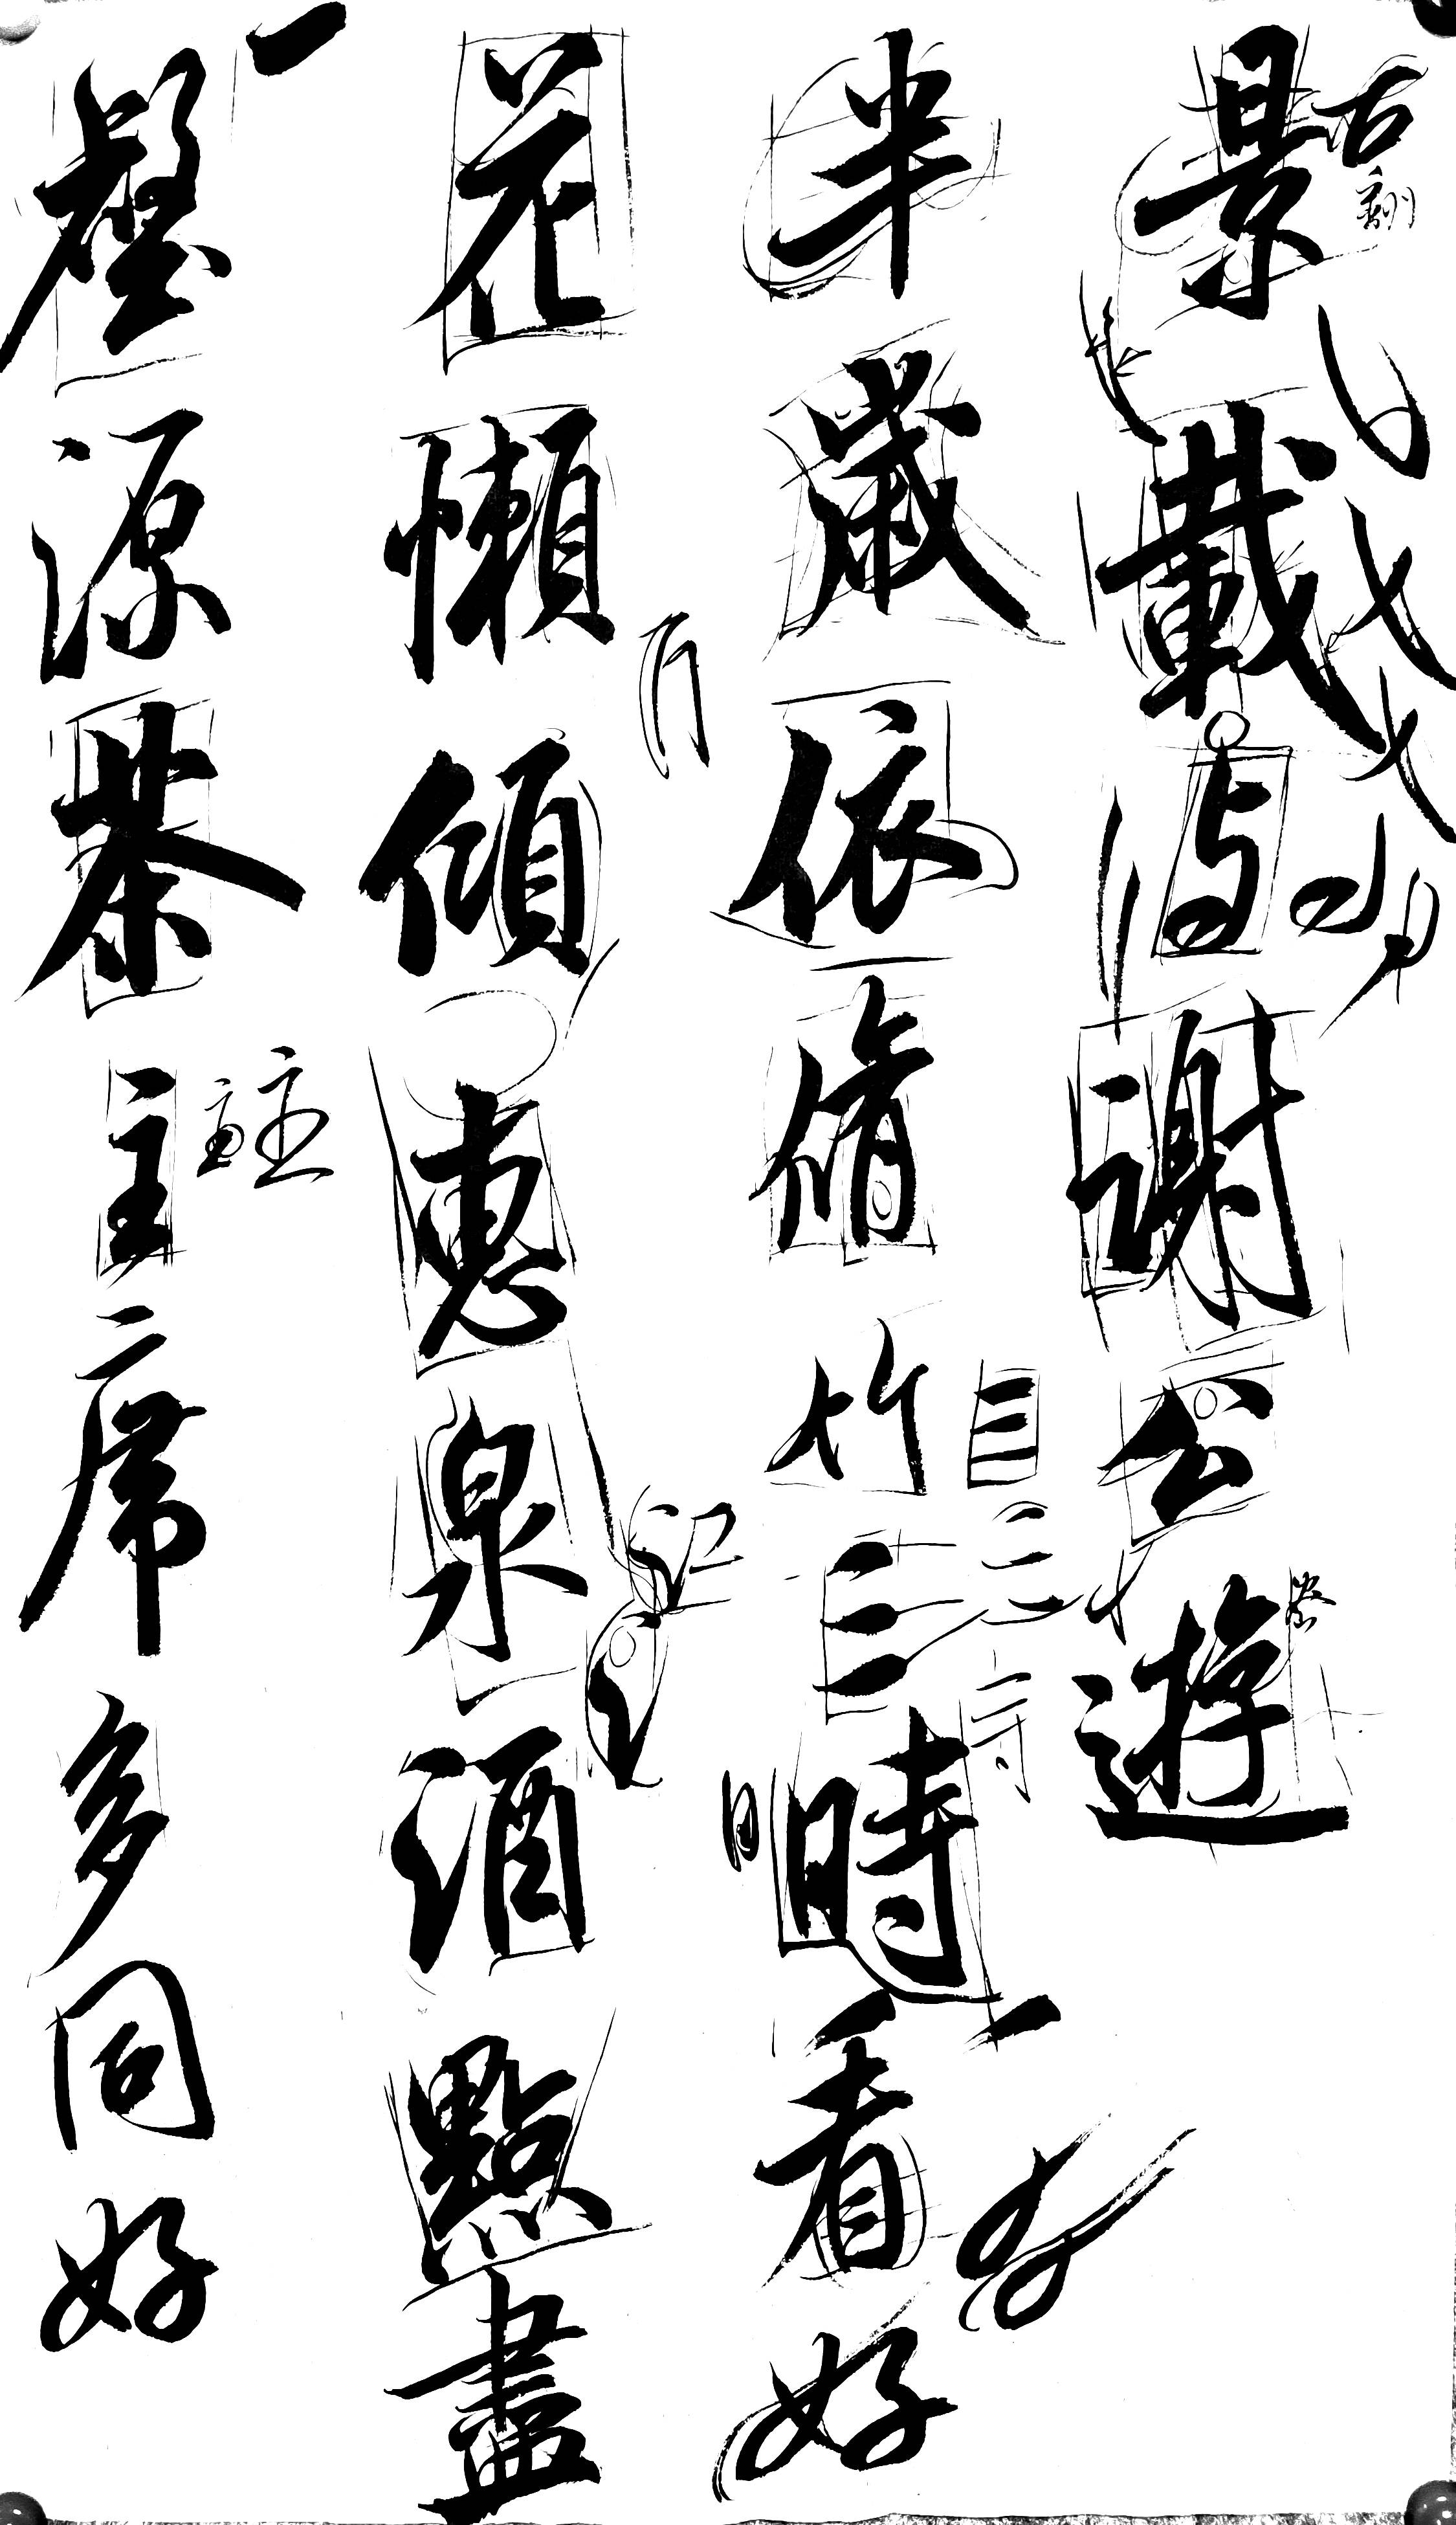 景載与謝公遊
半歲依脩竹三時看好
花懶傾惠泉酒點盡
壑源茶主席多同好